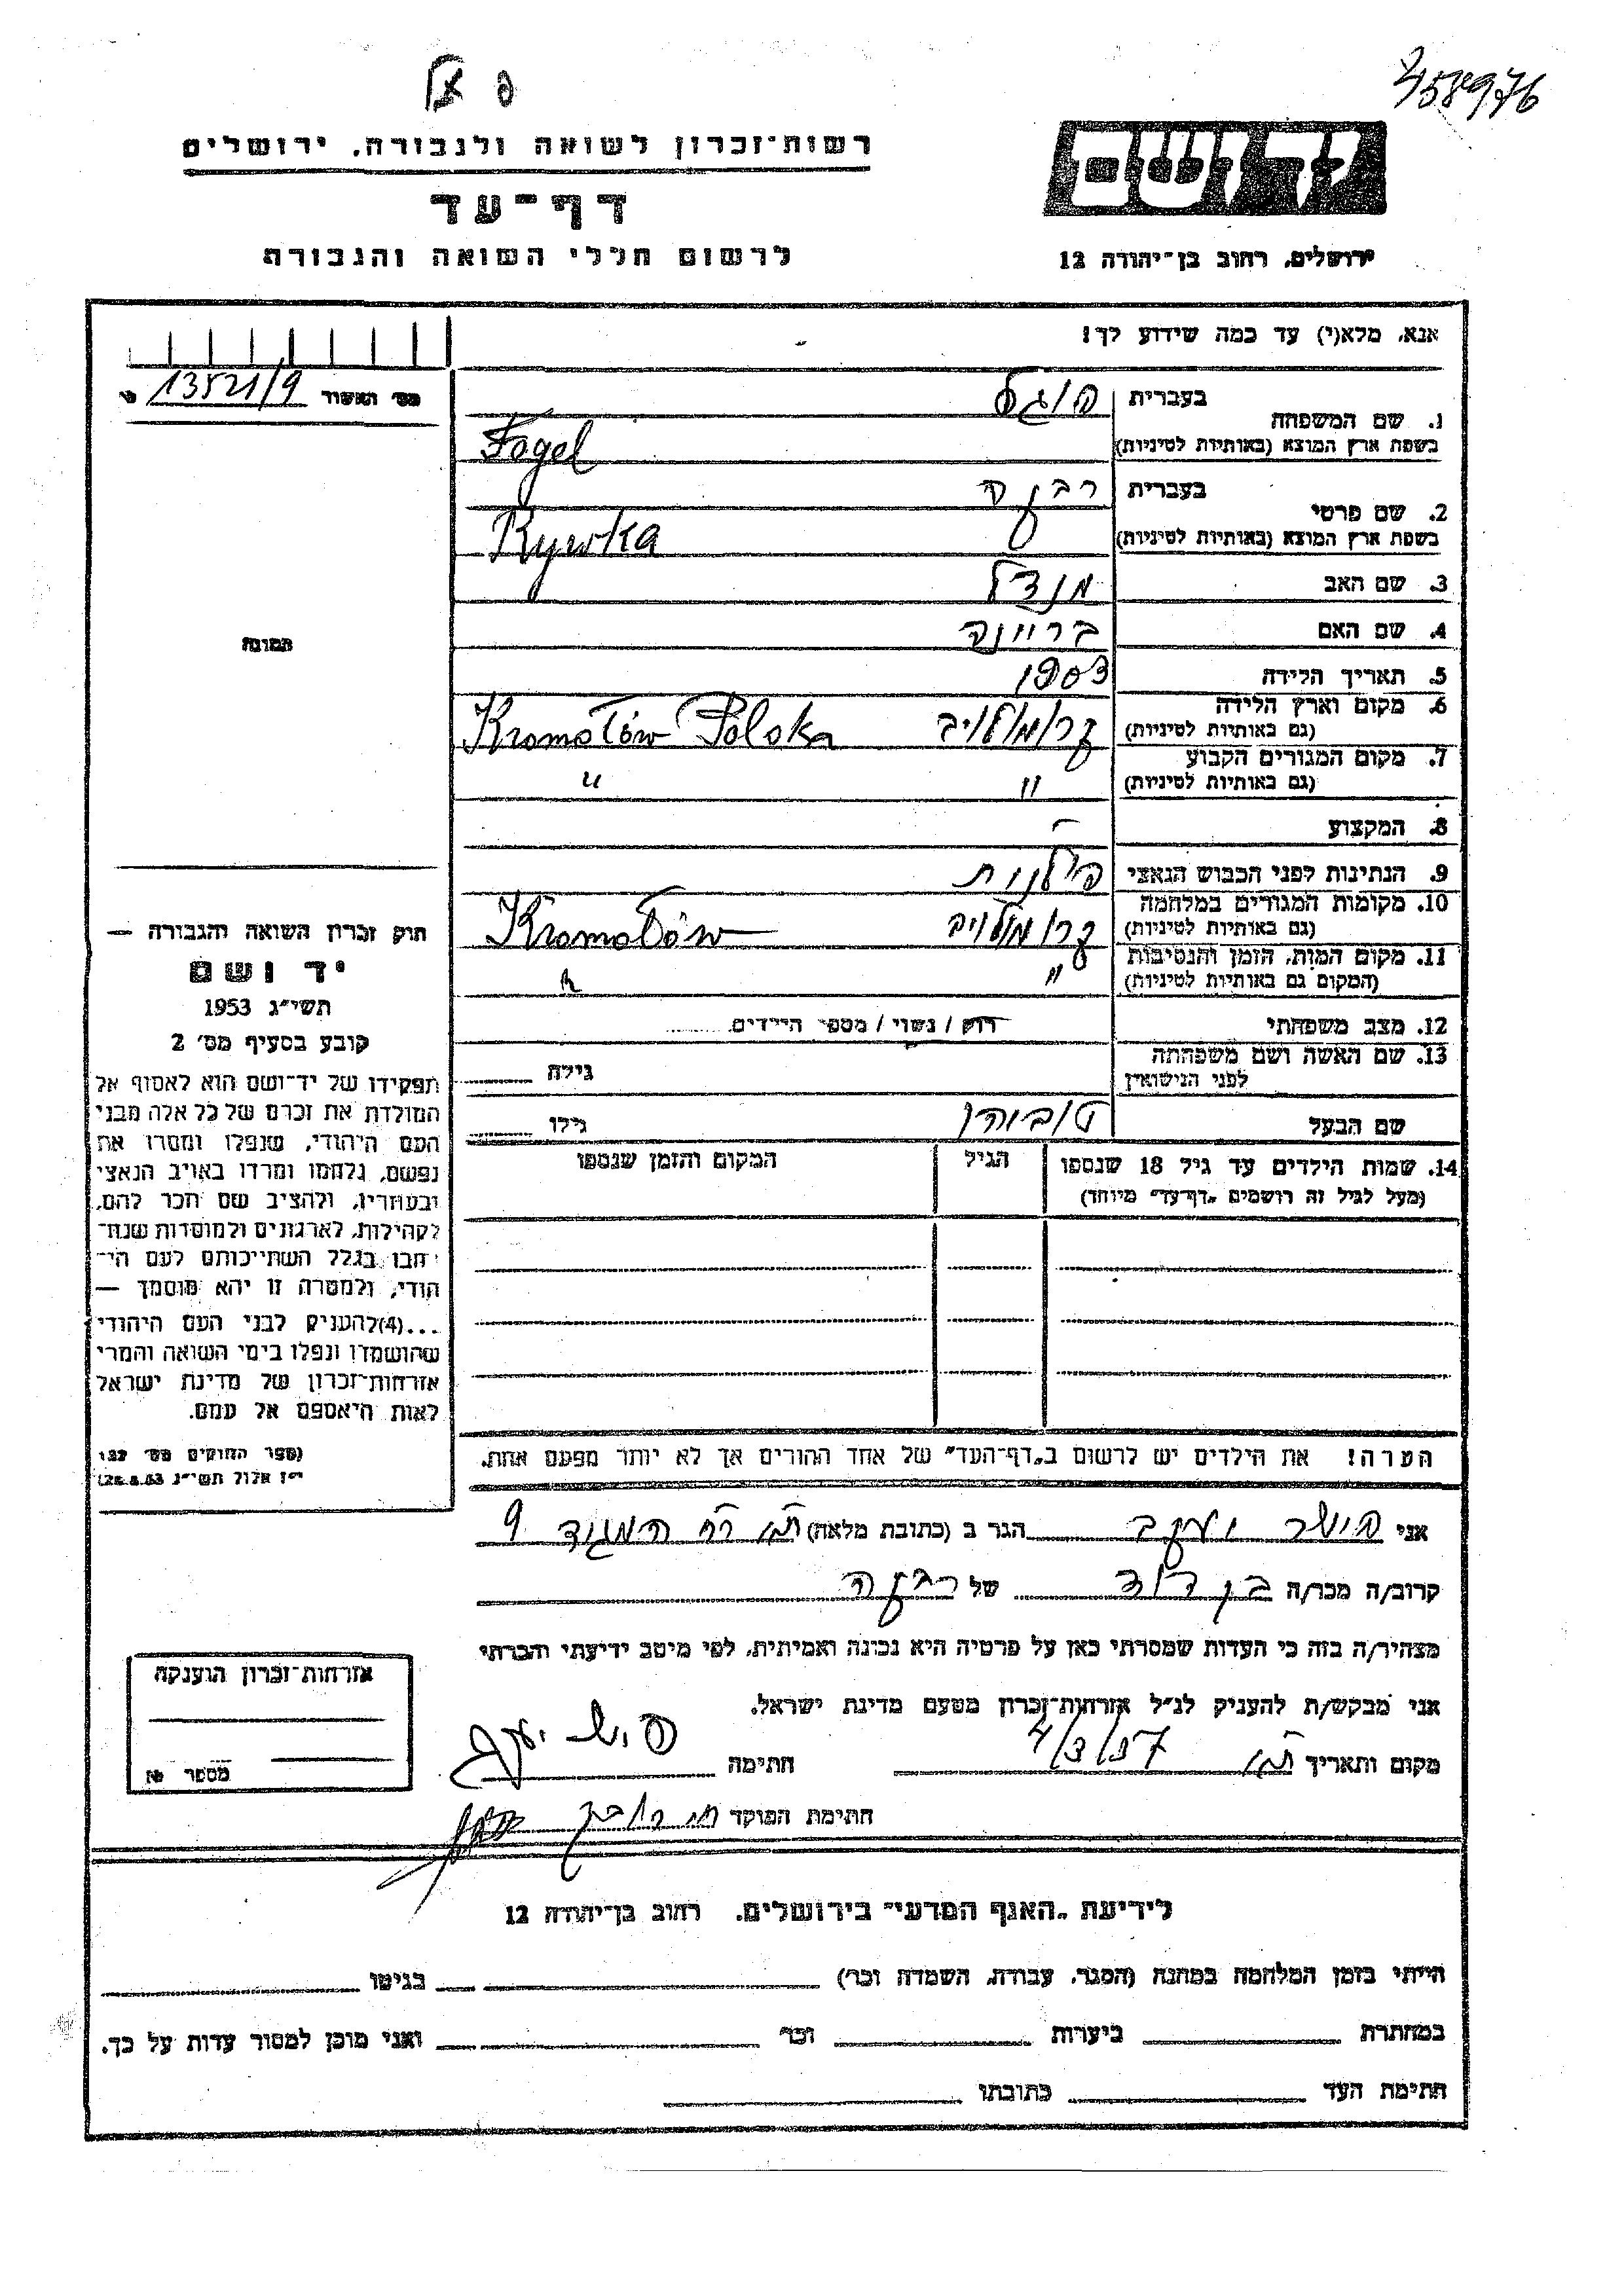 פ אל
458976
רשות־זכרון לשואה ולגבורה, ירושלים
דף־עד
לרשום חללי השואה והגבורה
יד ושם
ירושלים, רחוב בן־יהודה 12
אנא, מלא(י) עד כמה שידוע לך!
מס׳ האשור 13521/9
1. שם המשפחה
בעברית פוגל
בשפת ארץ המוצא (באותיות לטיניות) Fogel
2. שם פרטי
בעברית רבקה
בשפת ארץ המוצא (באותיות לטיניות) Rywka
3. שם האב מנדל
4. שם האם בריינה
5. תאריך הלידה 1903
6. מקום וארץ הלידה
(גם באותיות לטיניות) קרומולויב Kromołów Polska
7. מקום המגורים הקבוע
(גם באותיות לטיניות) " "
8. המקצוע –
9. הנתינות לפני הכבוש הנאצי פולנית
10. מקומות המגורים במלחמה
(גם באותיות לטיניות) קרומולויב Kromołów
11. מקום המות, הזמן והנסיבות
(המקום גם באותיות לטיניות) " "
12. מצב משפחתי רוק / נשוי / מספר הילדים
13. שם האשה ושם משפחתה
לפני הנישואין גילה
שם הבעל גילו
14. שמות הילדים עד גיל 18 שנספו
(מעל לגיל זה רושמים „דף־עד״ מיוחד)
הגיל
המקום והזמן שנספו
הערה! את הילדים יש לרשום ב„דף־העד״ של אחד ההורים אך לא יותר מפעם אחת.
תמונה
חוק זכרון השואה והגבורה —
יד ושם
תשי״ג 1953
קובע בסעיף מס׳ 2
תפקידו של יד־ושם הוא לאסוף אל
המולדת את זכרם של כל אלה מבני
העם היהודי, שנפלו ומסרו את
נפשם, נלחמו ומרדו באויב הנאצי
ובעוזריו, ולהציב שם וזכר להם,
לקהילות, לארגונים ולמוסדות שנח־
רבו בגלל השתייכותם לעם הי־
הודי, ולמטרה זו יהא מוסמך —
...(4)להעניק לבני העם היהודי
שהושמדו ונפלו בימי השואה והמרי
אזרחות־זכרון של מדינת ישראל
לאות היאספם אל עמם.
(ספר החוקים מס׳ 132
י״ז אלול תשי״ג 28.8.53)
אני פישר יעקב הגר ב (כתובת מלאה) ת״א רח המגיד 9
קרוב/ה מכר/ה בן דוד של רבקה
מצהיר/ה בזה כי העדות שמסרתי כאן על פרטיה היא נכונה ואמיתית, לפי מיטב ידיעתי והכרתי
אני מבקש/ת להעניק לנ״ל אזרחות־זכרון מטעם מדינת ישראל.
מקום ותאריך ת״א 4/3/57 חתימה פישר יעקב
חתימת הפוקד
אזרחות־זכרון הוענקה
מספר
לידיעת „האגף המדעי״ בירושלים, רחוב בן־יהודה 12
הייתי בזמן המלחמה במחנה (הסגר, עבודה, השמדה וכר׳) בגיטו
במחתרת ביערות וכר׳ ואני מוכן למסור עדות על כך.
חתימת העד כתובתו